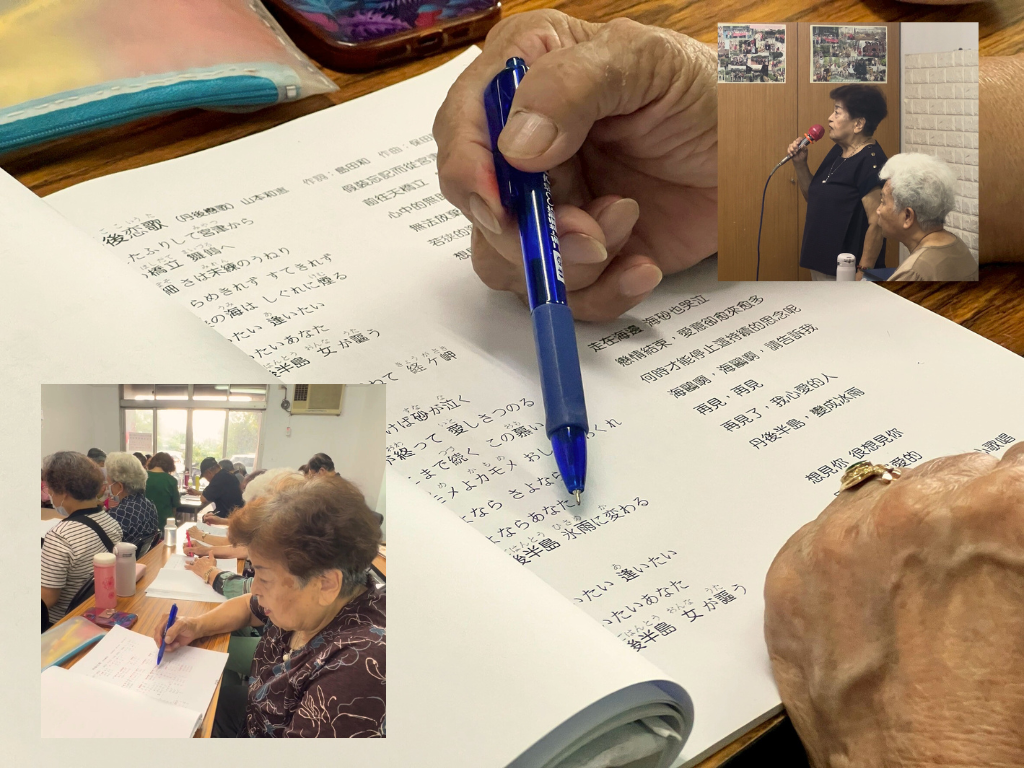 後恋歌 (丹後慕歌) 山本和恵 作詞:島田和 作曲:保田
たふりして宮津から
橋立
細 さは未練のうねり
らめきれず すてきれず
の海は しぐれに煙る
たい 逢いたい
たいあなた
半島 女が謳う
れて 経ケ岬
けば砂が泣く
終って 愛しさつのる
まで続く この慕い
ニメよカモメ おし くれ
なら さよなら
ならあなた
後半島 氷雨に変わる
たい 逢いたい
いたいあなた
後半島 女が謳う
假裝忘記而從宮津
前往天橋立
心中的無
無法放棄
若淡的
想
走在海邊 海砂也哭泣
戀情結束,愛意卻愈來愈多
何時才能停止這持續的思念呢
海鷗啊,海鷗啊,請告訴我
再見,再見
再見了,我心愛的人
丹後半島,變成冰雨
想見你 很想見你
愛的
歌唱